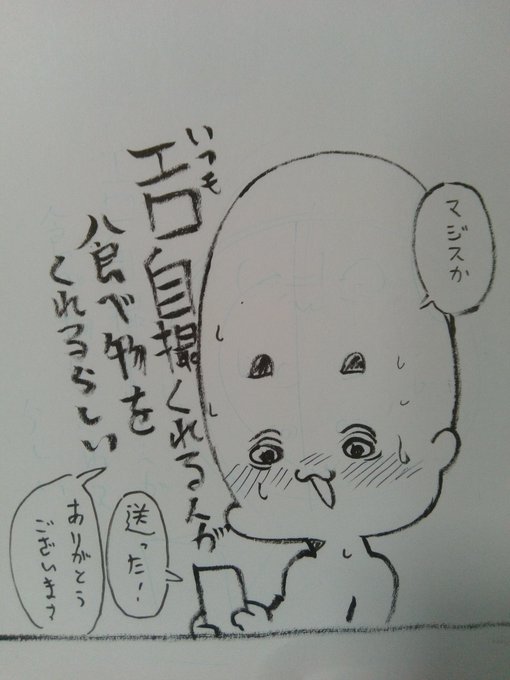 マジスか
いつも
エロ自撮くれる人が
食べ物を
くれるらしい
送った!
ありがとう
ございます